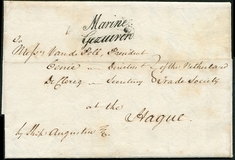 Marine
Gezuiverd
To
Messrs Van de Poll, President
Director of the Netherland
De Clercq Secretary Trade Society
at the
Hague.
by Ship Augustin